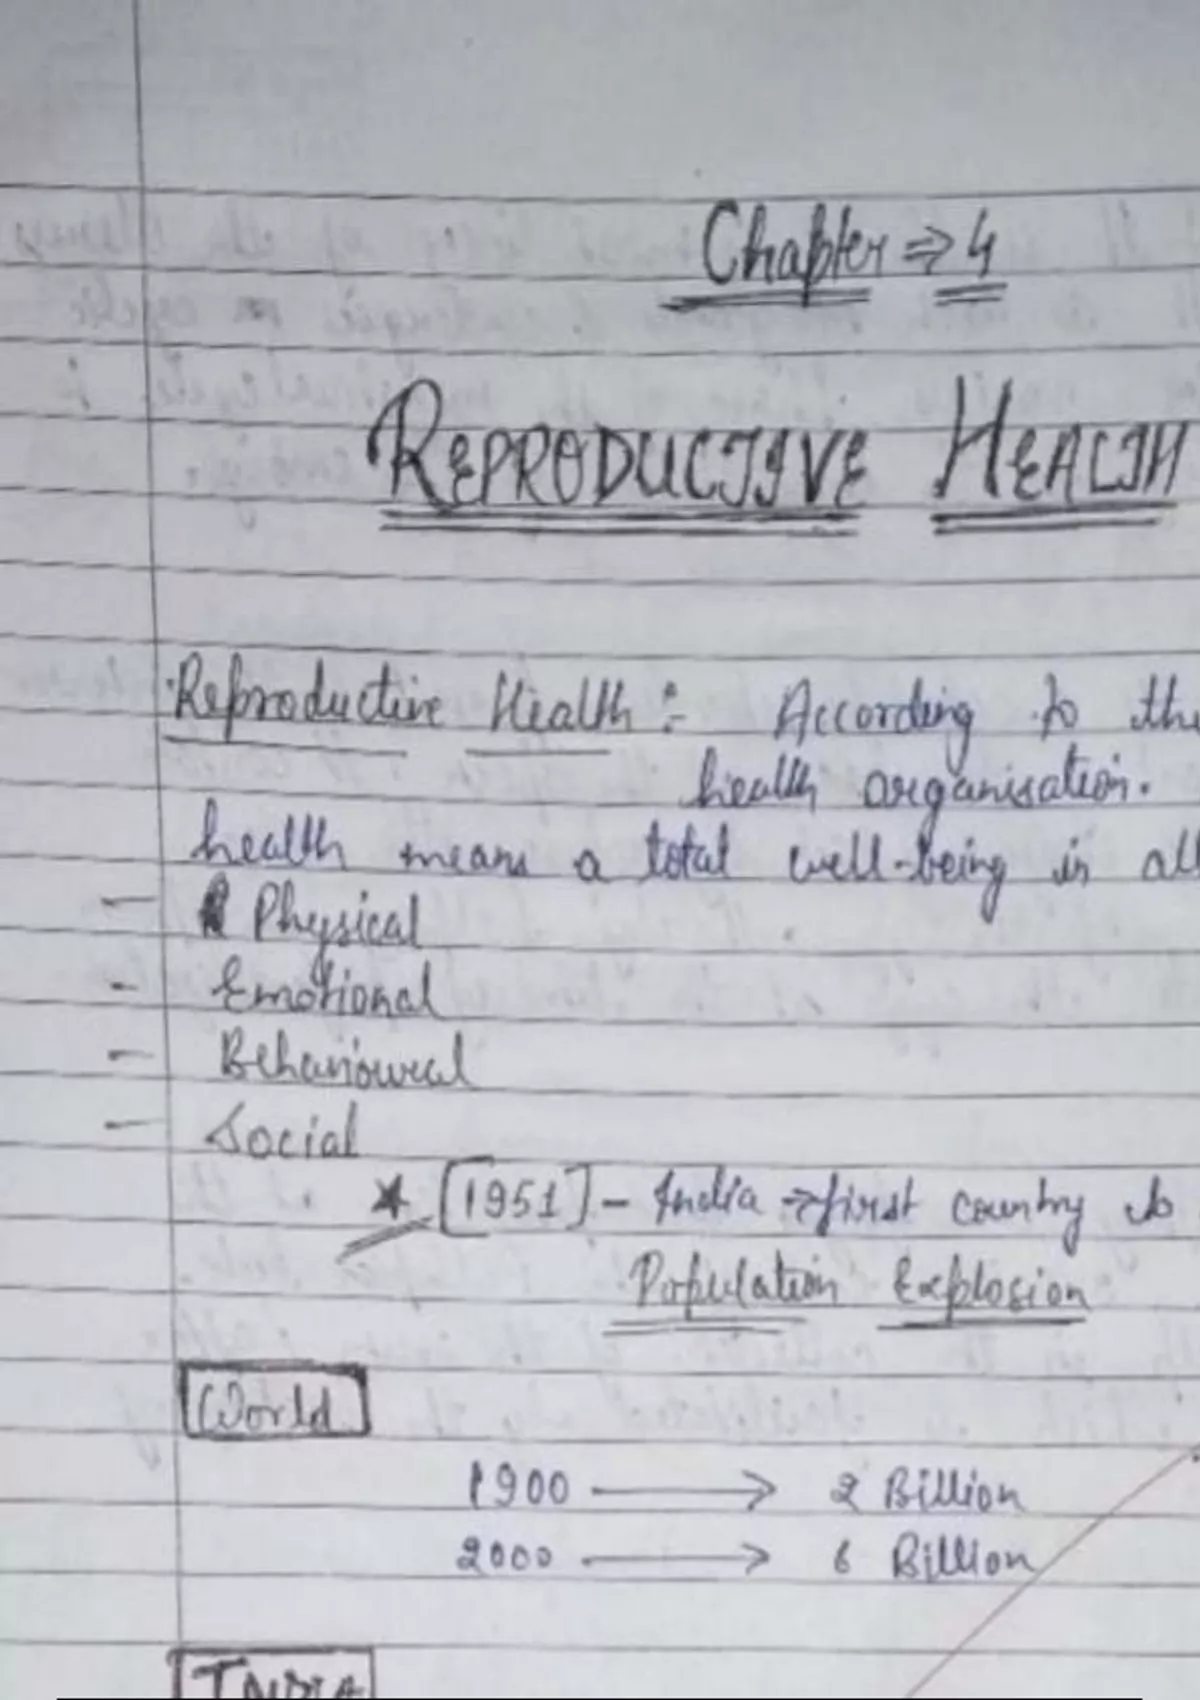 Chapter ⇒ 4
REPRODUCTIVE HEALTH
Reproductive Health :- According to the
health organisation.
health means a total well-being in all
- Physical
- Emotional
- Behavioural
- Social
★ [1951] - India → first country to
Population Explosion
World
1900 → 2 Billion
2000 → 6 Billion
INDIA